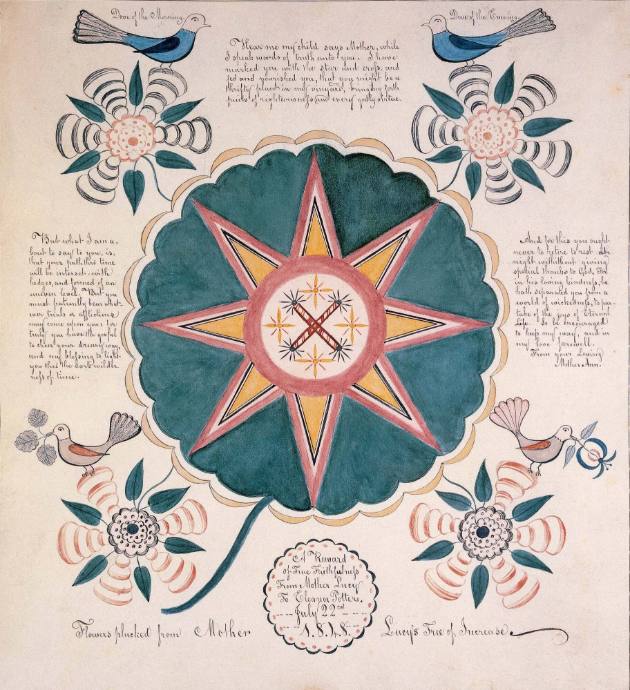 Dove of the Morning.
Dove of the Evening.
Hear me my child says Mother, while
I speak words of truth unto you. I have
marked you with the star and cross, and
fed and nourished you, that you might be a
thrifty plant in my vineyard, bringing forth
fruits of righteousness and every godly virtue.
But what I am a-
bout to say to you, is;
that your path thro time
will be interset with
hedges, and formed of an
uneven level. But you
must patiently bear what-
ever trials or afflictions
may come upon you; for
truly you have the gospel
to cheer your dreary way,
and my blessing to light
you thro the dark wilder-
ness of time.
And for this you ought
never to retire to rest at
night without giving
special thanks to God, For
in his loving kindness, he
hath separated you from a
world of wickedness, to par-
take of the joys of Eternal
Life. So be encouraged
to keep my way, and in
my love farewell.
From your Loving
Mother Ann.
A Reward
of True Faithfulness
From Mother Lucy
To Eleanor Potter.
July 22nd
1.8.4.8.
Flowers plucked from Mother Lucy's Tree of Increase